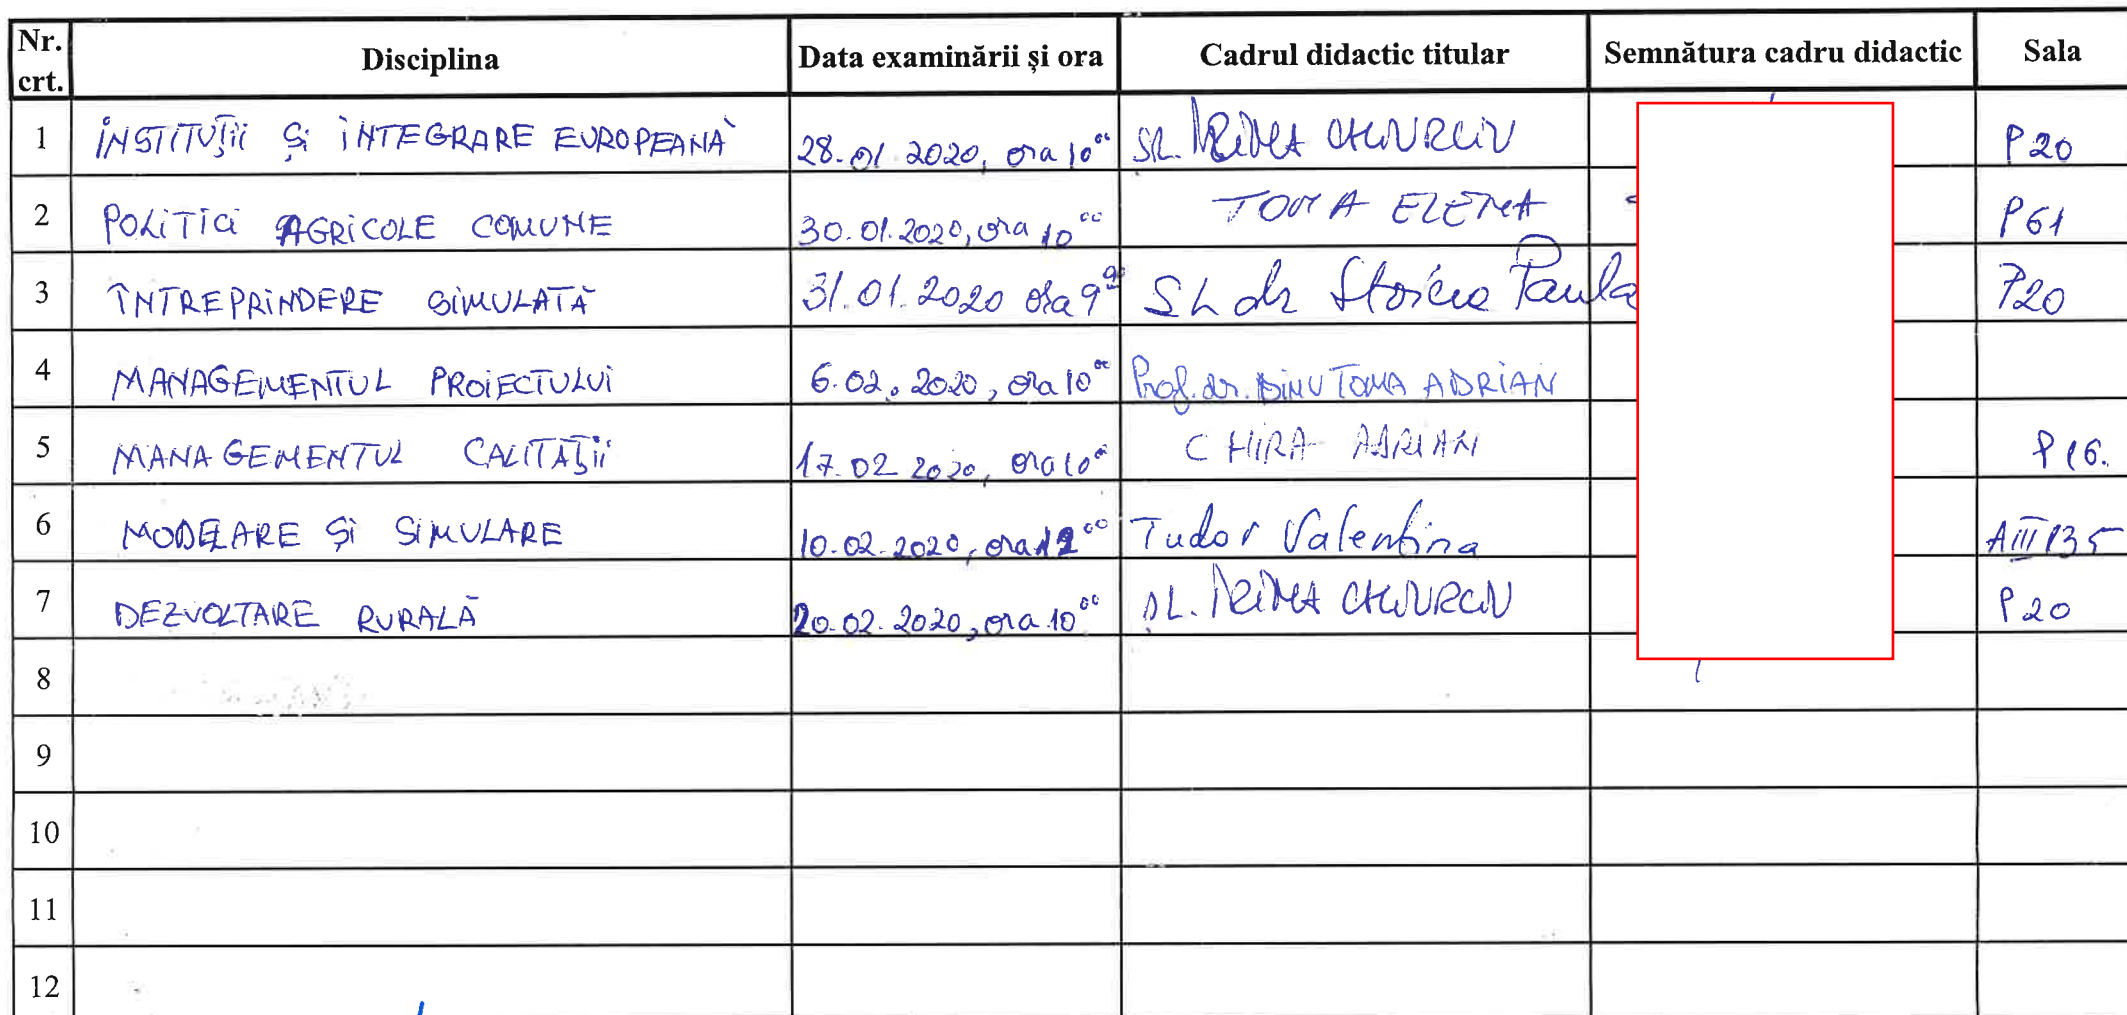 Nr. crt. Disciplina Data examinării și ora Cadrul didactic titular Semnătura cadru didactic Sala
1 INSTITUȚII ȘI INTEGRARE EUROPEANĂ 28.01.2020, ora 10⁰⁰ SL. IRINA CHIURCIU P20
2 POLITICI AGRICOLE COMUNE 30.01.2020, ora 10⁰⁰ TOMA ELENA P61
3 ÎNTREPRINDERE SIMULATĂ 31.01.2020 ora 9⁰⁰ SL dr Stoicea Paula P20
4 MANAGEMENTUL PROIECTULUI 6.02.2020, ora 10⁰⁰ Prof. dr. DINU TOMA ADRIAN
5 MANAGEMENTUL CALITĂȚII 17.02.2020, ora 10⁰⁰ CHIRA ADRIAN P16.
6 MODELARE ȘI SIMULARE 10.02.2020, ora 12⁰⁰ Tudor Valentina AIII 135
7 DEZVOLTARE RURALĂ 20.02.2020, ora 10⁰⁰ ȘL. IRINA CHIURCIU P20
8
9
10
11
12